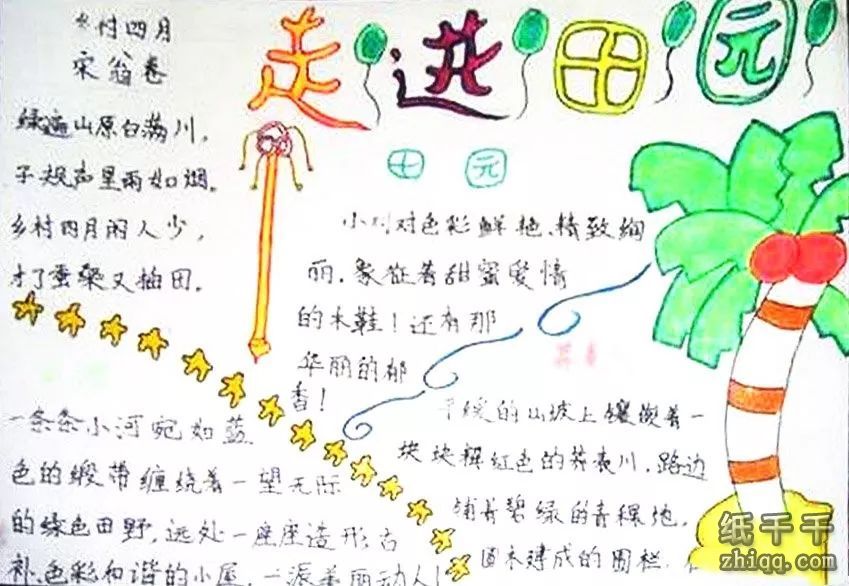 走进田园
乡村四月
宋翁卷
绿遍山原白满川,
子规声里雨如烟。
乡村四月闲人少,
才了蚕桑又插田。
田 园
小村对色彩鲜艳、精致绚
丽,象征着甜蜜爱情
的木鞋!还有那
华丽的郁
香!
一条条小河宛如蓝
色的缎带缠绕着一望无际
的绿色田野,远处一座座造形古
补、色彩和谐的小屋,一派美丽动人!
平缓的山坡上镶嵌着一
块块褐红色的荞麦川,路边
铺着碧绿的青稞地,
圆木建成的围栏,
纸千千
zhiqq.com